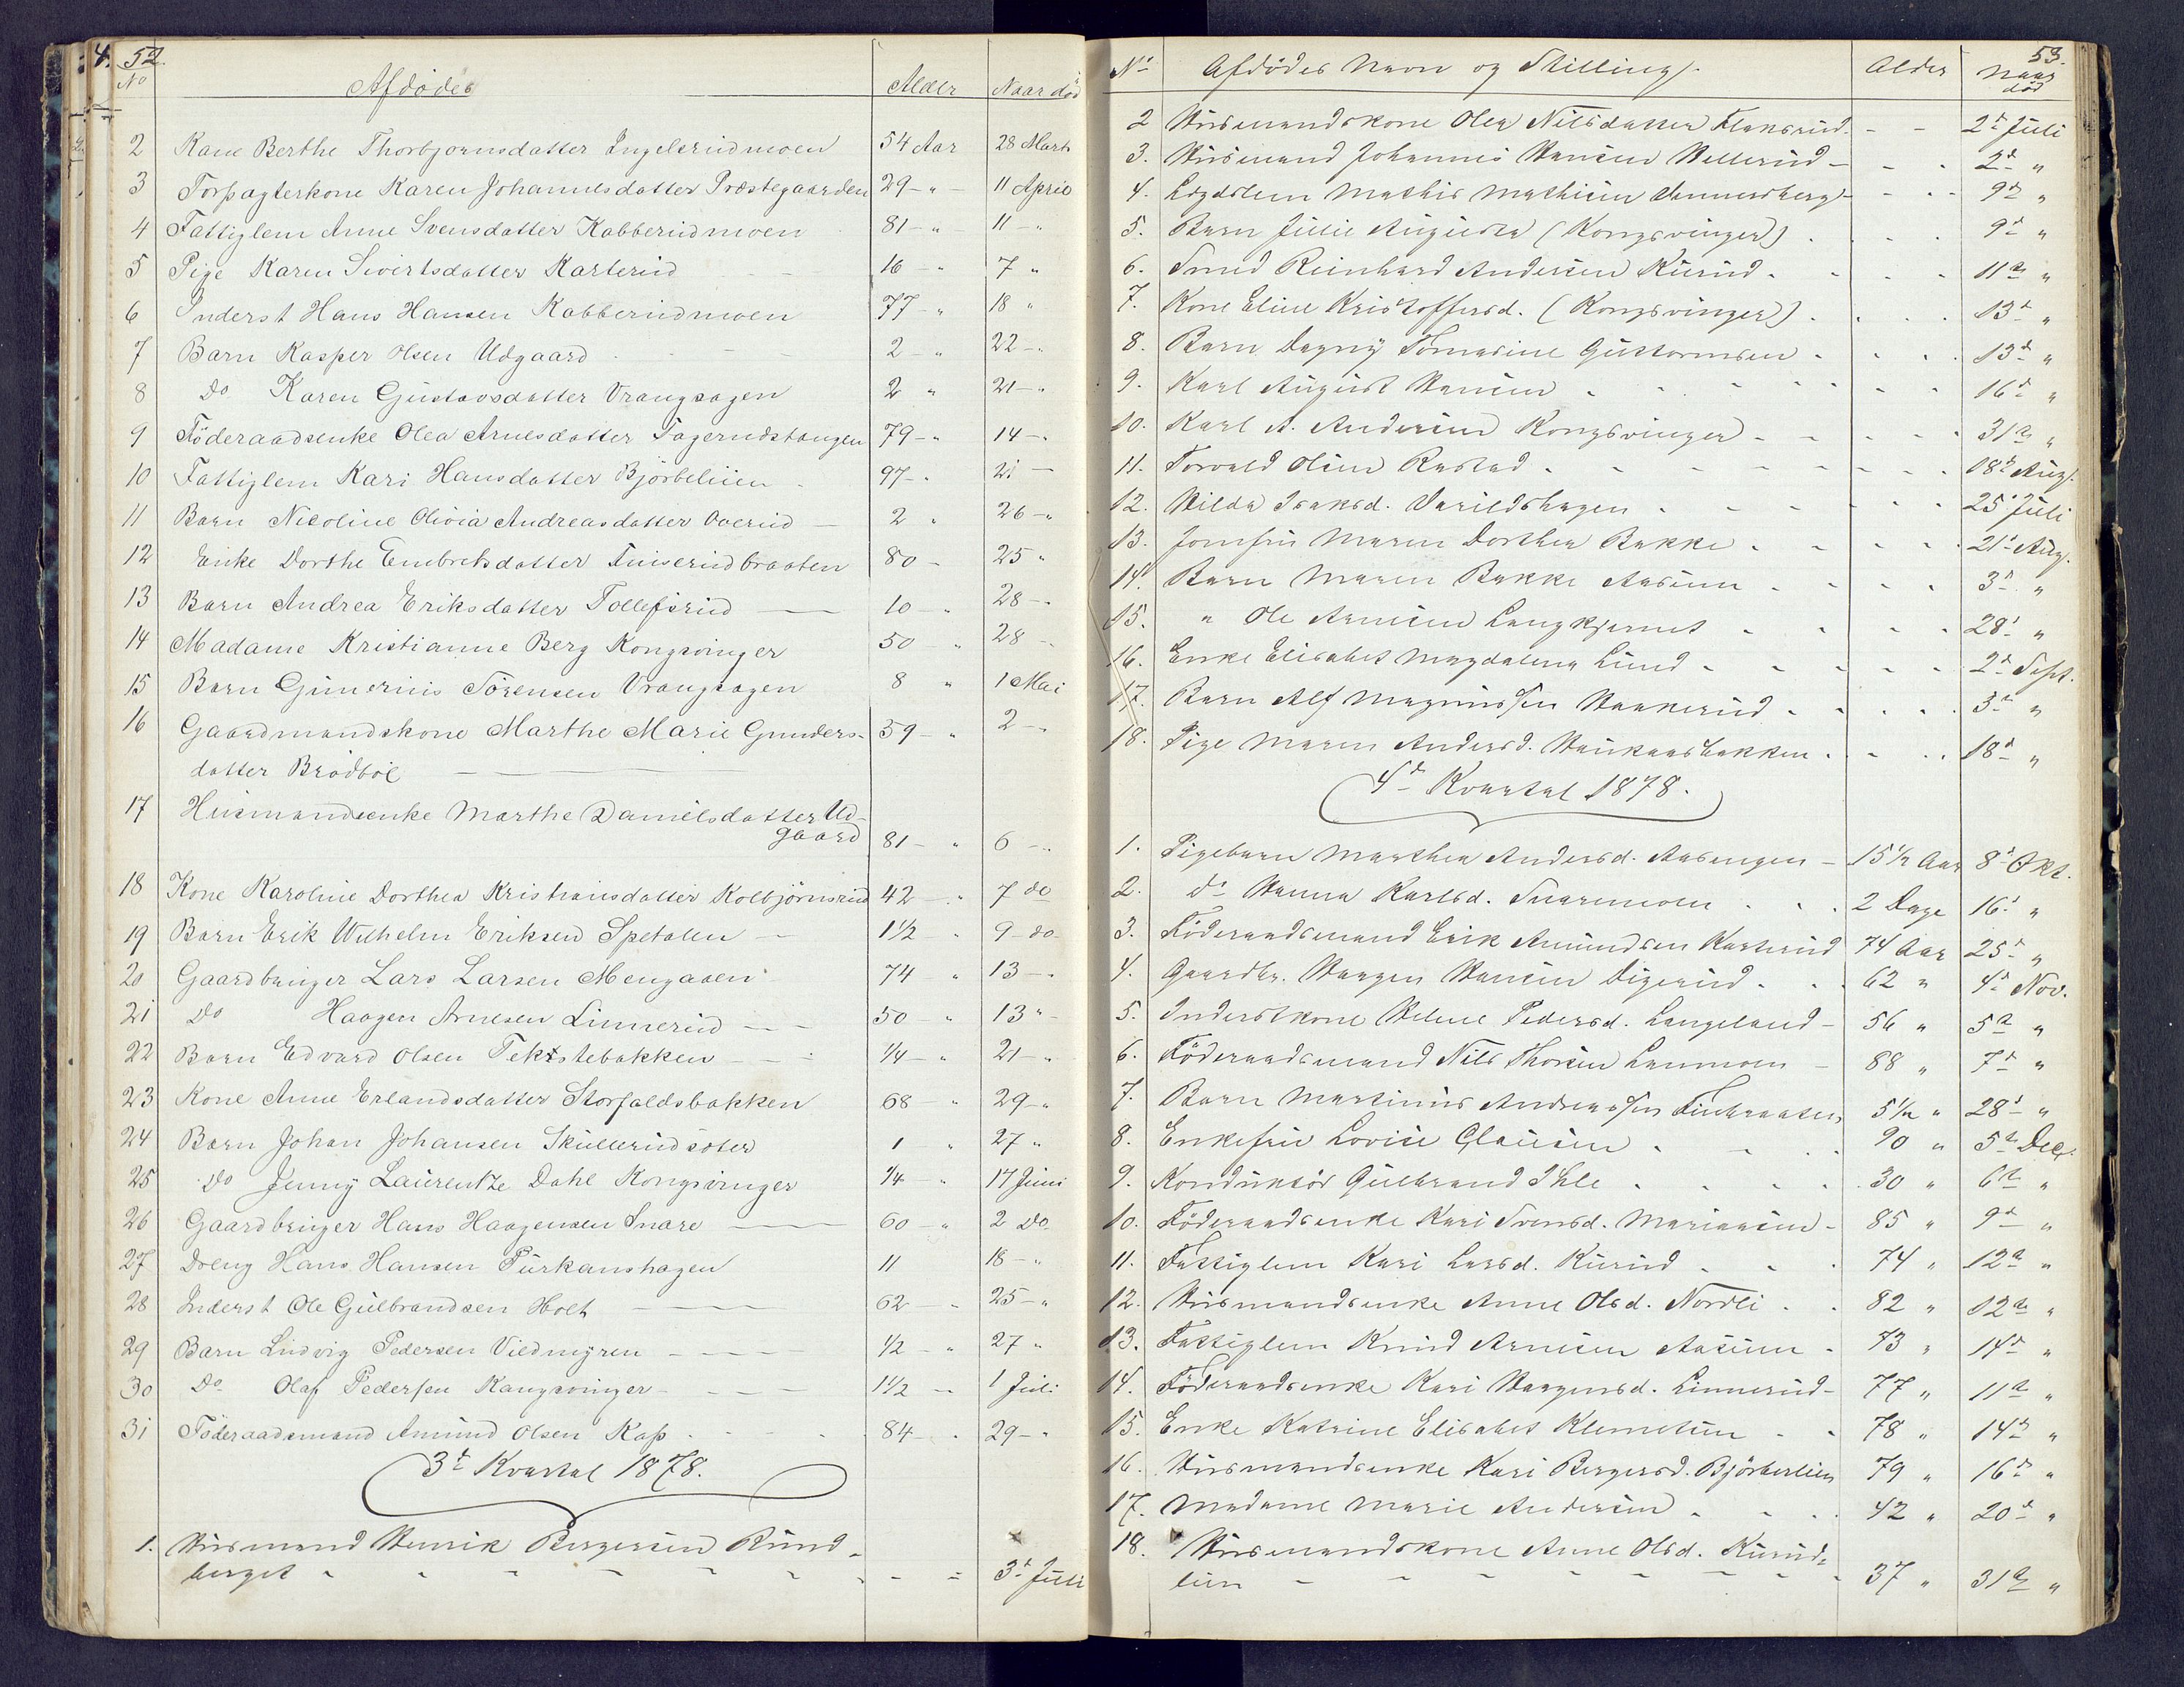 52.
No Afdödes Alder Naar död
2 Kone Berthe Thorbjornsdatter Ingelsrudmoen 54 Aar 28 Marts
3 Forpagterkone Karen Johannesdatter Præstegaarden 29 - " - 11 April
4 Fattiglem Anne Svensdatter Kabberudmoen 81 - " 11 - "
5 Pige Karen Sivertsdatter Karterud 16 - " 7 "
6 Inderst Hans Hansen Kabberudmoen 77 - " 18 "
7 Barn Kasper Olsen Udgaard 2 - " 22 - "
8 Do Karen Gustavsdatter Vrangsagen 2 " 21 - "
9 Föderaadsenke Olea Arnesdatter Fagerudstangen 79 - " 14 - "
10 Fattiglem Kari Hansdatter Björbeliien 97 - " 21 -
11 Barn Nicoline Olivia Andreasdatter Overud - 2 " 26 - "
12 Enke Dorthe Embretsdatter Tuiserudbraaten 80 - 25 "
13 Barn Andrea Eriksdatter Tollefsrud 10 - " 28 - "
14 Madame Kristianne Berg Kongsvinger 50 " 28 -
15 Barn Gunerius Sörensen Vrangsagen 8 " 1 Mai
16 Gaardmandskone Marthe Marie Gunders- 59 - " 2 - "
datter Brödböl
17 Husmandsenke Marthe Danielsdatter Ud-
gaard 81 - " 6 - "
18 Kone Karoline Dorthea Kristiansdatter Kolbjörnsrud 42 - " 7 do
19 Barn Erik Wilhelm Eriksen Spetalen 1½ " 9 - do
20 Gaardbruger Lars Larsen Mengaaen 74 - " 13 - "
21 Do Haagen Arnesen Linnerud 50 - " 13 " -
22 Barn Edvard Olsen Tekstebakken ¼ - " 21 - "
23 Kone Anne Erlandsdatter Storfaldsbakken 68 - " 29 - "
24 Barn Johan Johansen Skullerudsæter 1 " 27 "
25 Do Jenny Laurentze Dahl Kongsvinger ¼ - " 17 Juni
26 Gaardbruger Hans Haagensen Snare 60 - " 2 Do
27 Dreng Hans Hansen Purkanshagen 11 18 - "
28 Inderst Ole Gulbrandsen Holt 62 - " 25 - "
29 Barn Ludvig Pedersen Viedmyren ½ - " 27 "
30 Do Olaf Pedersen Kongsvinger 1½ - " 1 Juli
31 Föderaadsmand Amund Olsen Kass 84 - " 29 - "
3d Kvartal 1878.
1. Husmand Henrik Bergersen Rund-
berget 3d Juli
53.
No Afdödes Navn og Stilling. Alder Naar
död
2 Husmandskone Olea Nilsdatter Flaksrud. - - 2d Juli
3. Husmand Johannes Hansen Hellerud - 2d "
4. Lægdslem Mathis Mathisen Vennersberg 9d "
5. Barn Julie Augusta (Kongsvinger) 9d "
6. Smed Reinhard Andersen Kurud 11te "
7. Kone Eline Kristoffersd. (Kongsvinger) 13d "
8. Barn Dagny Tomasine Guttormsen 13d "
9. Karl August Hansen 16d "
10. Karl A. Andersen Kongsvinger 31te "
11. Torvald Olsen Rastad 18d Aug.
12. Hilda Isaksd. Varildshagen 25d Juli
13. Jomfru Maren Dorthea Bakke 21d Aug.
14. Barn Maren Bakke Aasum 3d "
15. " Ole Arnesen Langkjernet 28d "
16. Enke Elisabet Magdalena Lund 2d Sept.
17. Barn Alf Magnussen Haakerud 3d "
18. Pige Maren Andersd. Haukaasbakken 18d "
4d Kvartal 1878.
1. Pigebarn Marthea Andersd. Aasengen - 15½ Aar 8d Okt.
2. do Hanna Karlsd. Snaremoen 2 Dage 16d "
3. Föderaadsmand Erik Amundsen Karterud 74 Aar 25d "
4. Gaardbr. Haagen Hansen Digerud 62 " 4d Nov.
5. Inderstkone Helene Pedersd. Langeland - 56 " 5te "
6. Föderaadsmand Nils Thorsen Lanmoen - 88 " 7d "
7. Barn Martinus Andreassen Finbraaten 5½ " 28d "
8. Enkefru Lovise Clausen 90 " 5te Dec.
9. Konduktör Gulbrand Ihle 30 " 6te "
10. Föderaadsenke Kari Svensd. Mariaasen - 85 " 9d "
11. Fattiglem Kari Larsd. Kurud 74 " 12te "
12. Husmandsenke Anne Olsd. Nordli 82 " 12te "
13. Fattiglem Knud Arnesen Aasum 73 " 14d "
14. Föderaadsenke Kari Haagensd. Linnerud - 77 " 11te "
15. Enke Katrine Elisabet Klemetsen 78 " 14d "
16. Husmandsenke Kari Bergersd. Björberlien 79 " 16d "
17. Madame Marie Andersen 42 " 20d "
18. Husmandskone Anne Olsd. Kurud-
lien 37 " 31te "